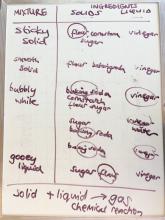 MIXTURE INGREDIENTS
SOLIDS LIQUID
sticky solid flour cornstarch vinegar
sugar
smooth solid flour vinegar
bubbly white baking soda vinegar
cornstarch
flour sugar
sugar vinegar
baking soda
sugar
baking soda
gooey liquid sugar flour vinegar
solid + liquid → gas
chemical reaction